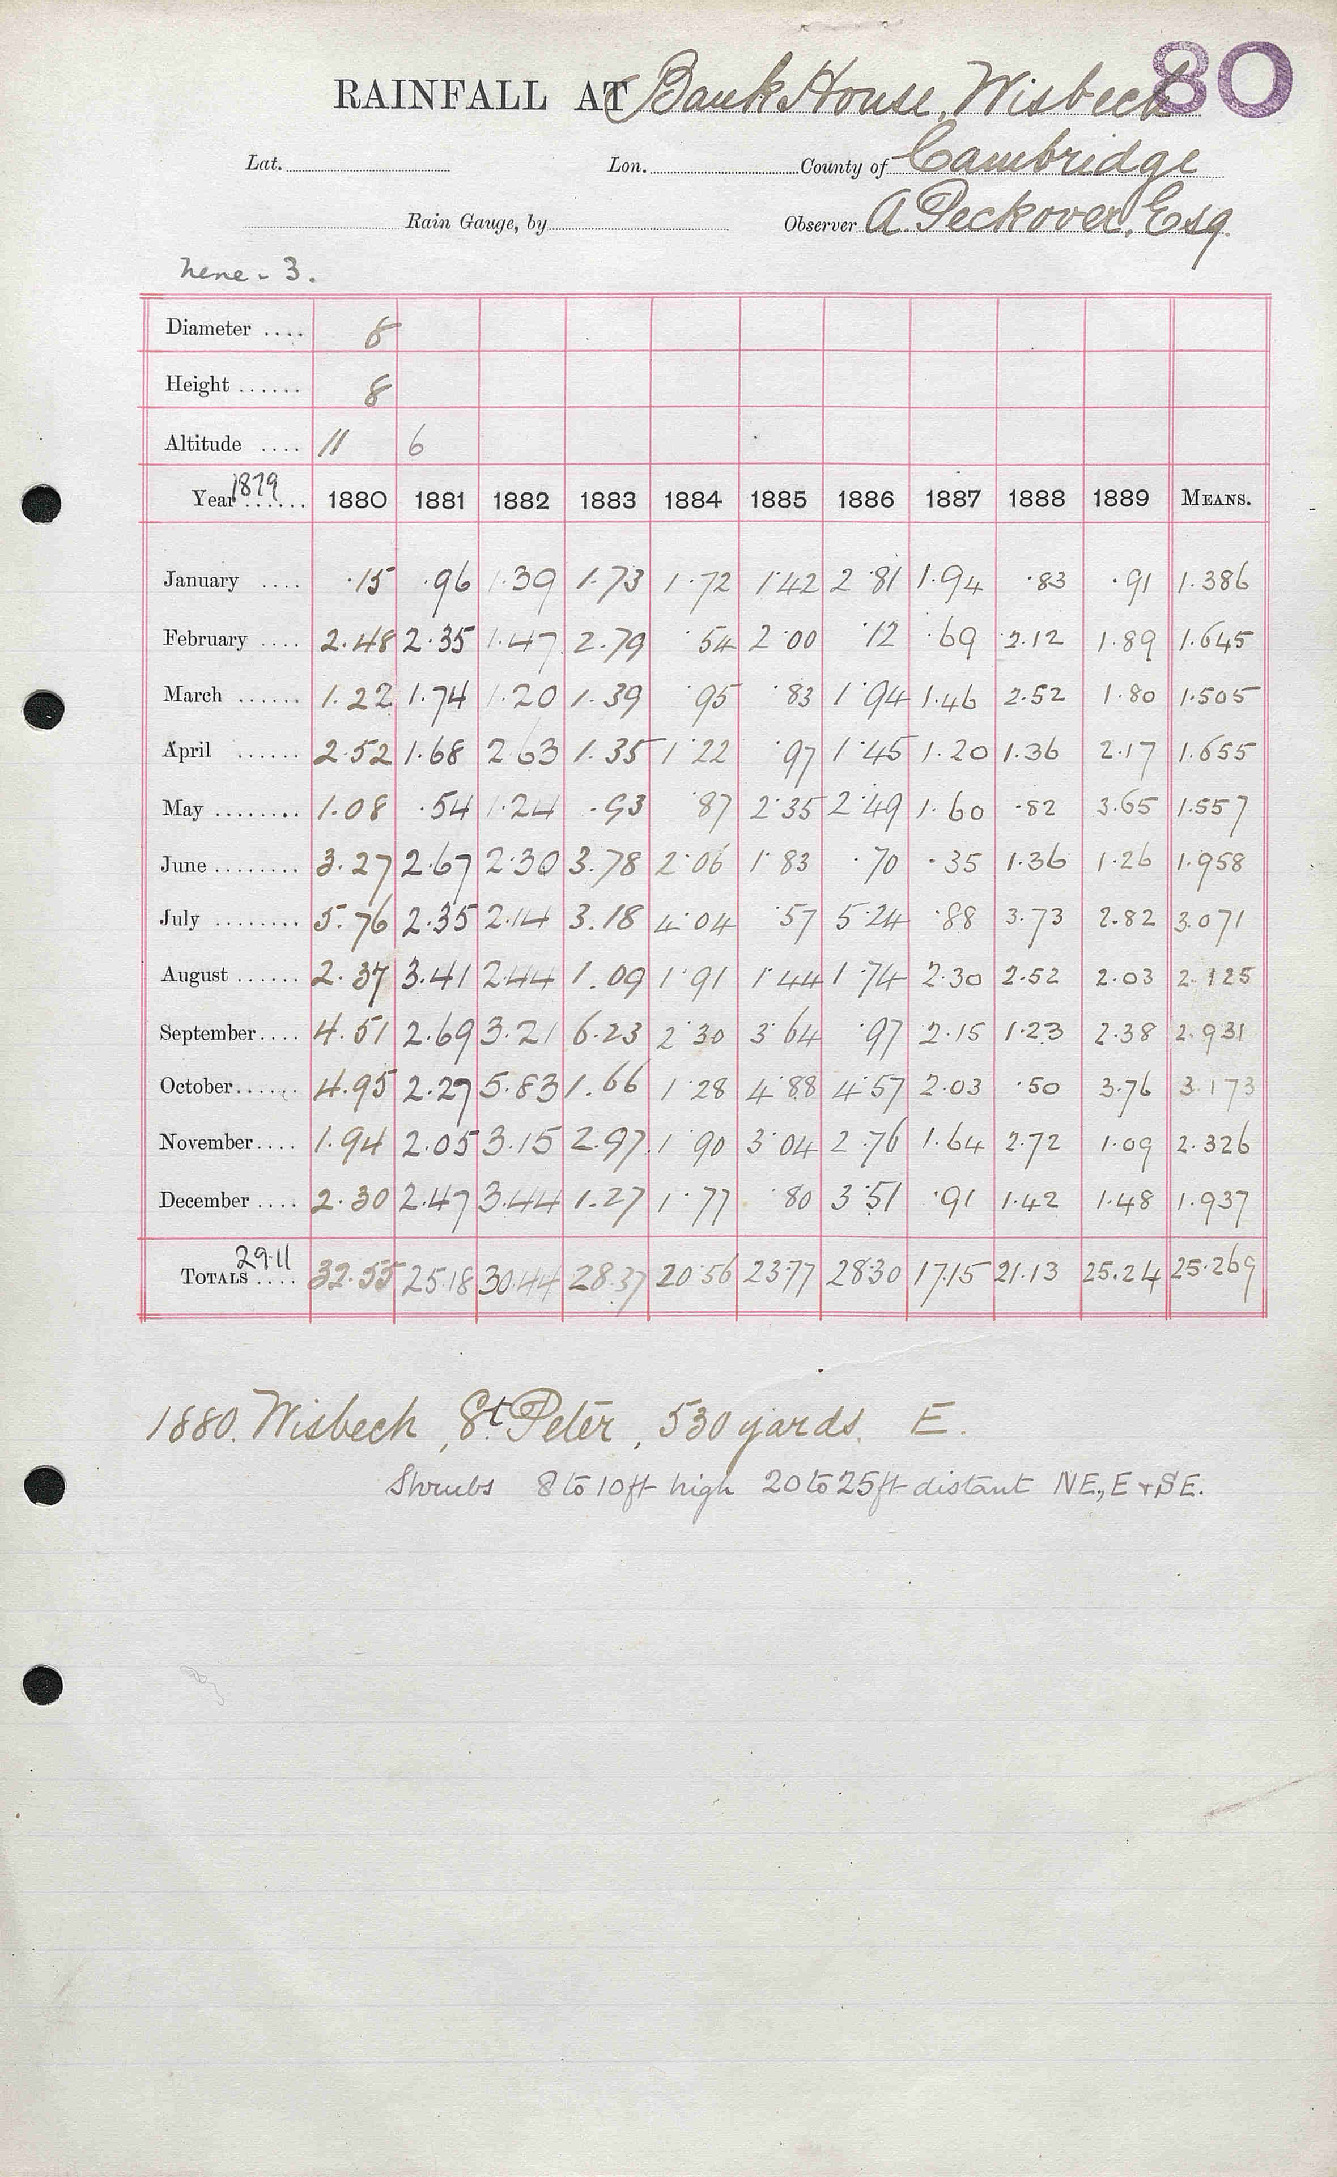 80
RAINFALL AT Bank House, Wisbech
Lat. Lon. County of Cambridge
Rain Gauge, by Observer A. Peckover, Esq.
Nene - 3.
Diameter .... 8
Height ...... 8
Altitude .... 11 6
Year 1879 ...... 1880 1881 1882 1883 1884 1885 1886 1887 1888 1889 MEANS.
January .... .15 .96 1.39 1.73 1.72 1.42 2.81 1.94 .83 .91 1.386
February .... 2.48 2.35 1.47 2.79 .54 2.00 .12 .69 2.12 1.89 1.645
March ...... 1.22 1.74 1.20 1.39 .95 .83 1.94 1.46 2.52 1.80 1.505
April ...... 2.52 1.68 2.63 1.35 1.22 .97 1.45 1.20 1.36 2.17 1.655
May ........ 1.08 .54 1.24 .93 .87 2.35 2.49 1.60 .82 3.65 1.557
June ........ 3.27 2.67 2.30 3.78 2.06 1.83 .70 .35 1.36 1.26 1.958
July ........ 5.76 2.35 2.14 3.18 4.04 .57 5.24 .88 3.73 2.82 3.071
August ...... 2.37 3.41 2.44 1.09 1.91 1.44 1.74 2.30 2.52 2.03 2.125
September .... 4.51 2.69 3.21 6.23 2.30 3.64 .97 2.15 1.23 2.38 2.931
October ...... 4.95 2.27 5.83 1.66 1.28 4.88 4.57 2.03 .50 3.76 3.173
November .... 1.94 2.05 3.15 2.97 1.90 3.04 2.76 1.64 2.72 1.09 2.326
December .... 2.30 2.47 3.44 1.27 1.77 .80 3.51 .91 1.42 1.48 1.937
TOTALS 29.11 .... 32.55 25.18 30.44 28.37 20.56 23.77 28.30 17.15 21.13 25.24 25.269
1880. Wisbech, St. Peter, 530 yards. E.
Shrubs 8 to 10 ft high 20 to 25 ft distant NE, E + SE.